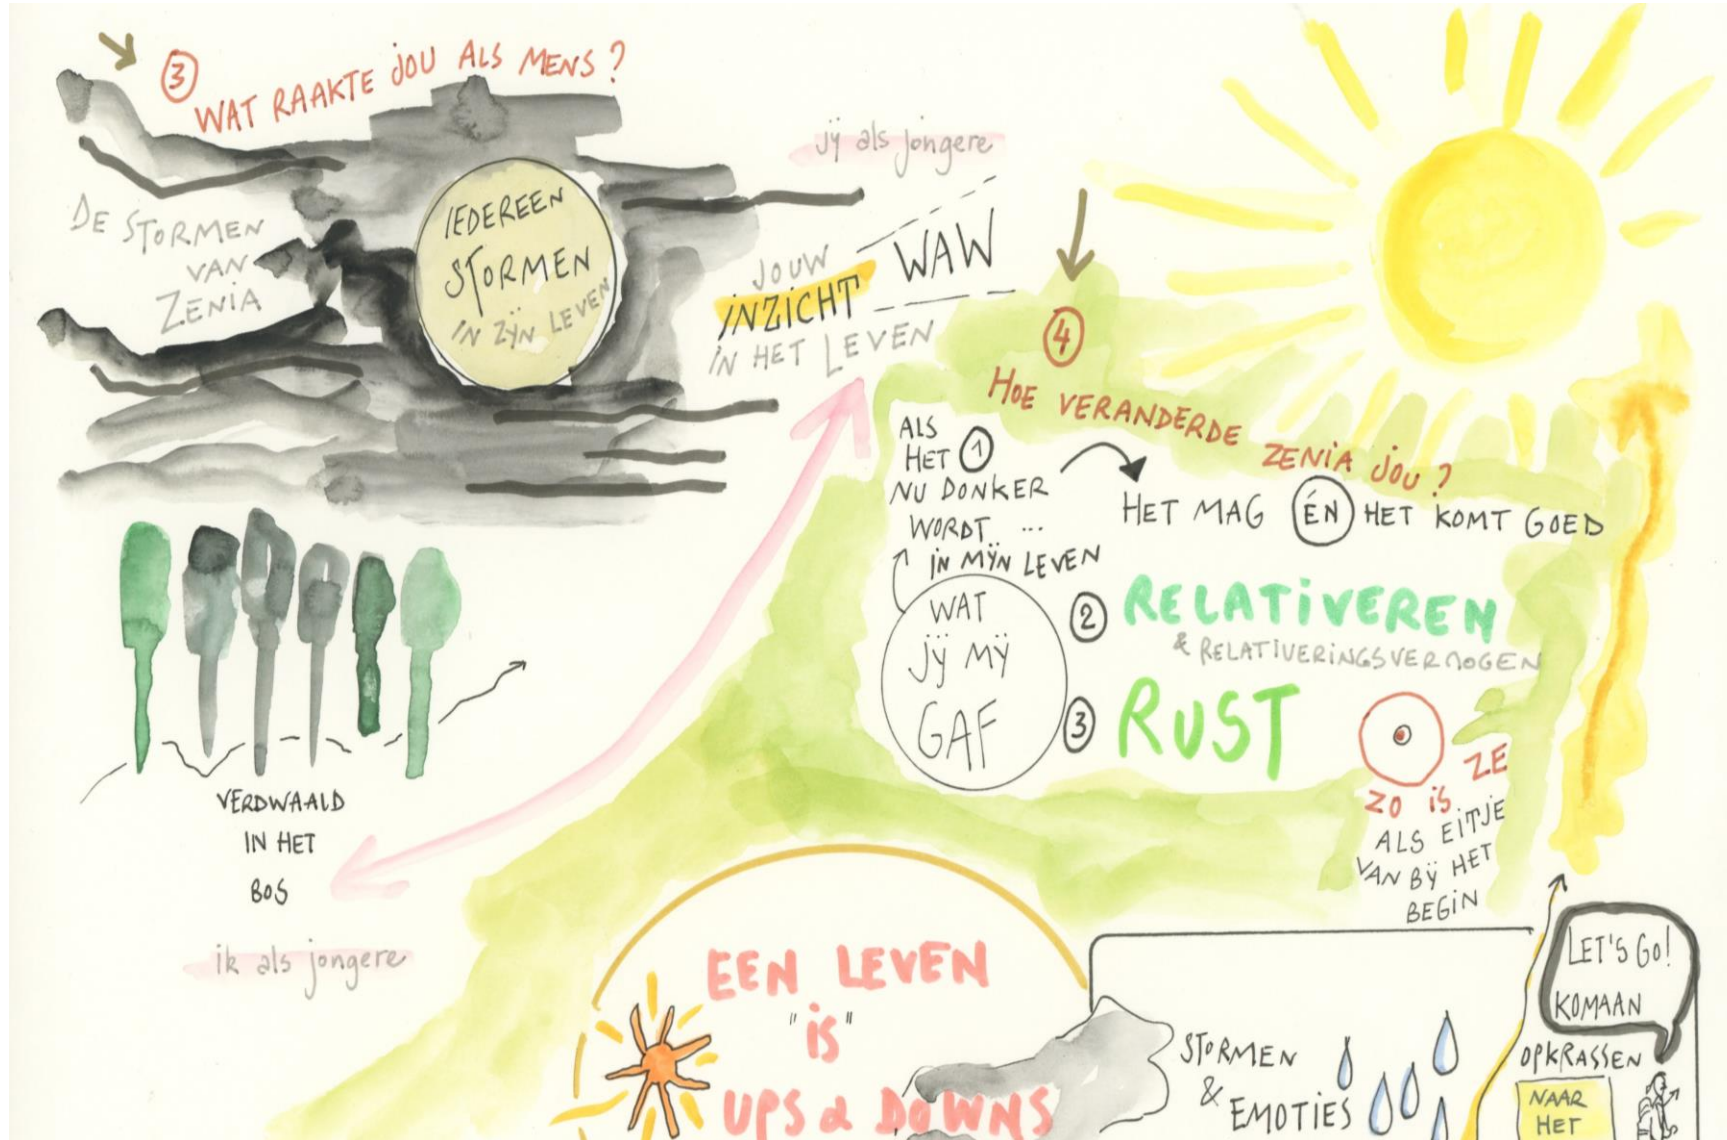 3
WAT RAAKTE JOU ALS MENS?
DE STORMEN
VAN
ZENIA
IEDEREEN
STORMEN
IN ZIJN LEVEN
jij als jongere
JOUW
INZICHT
IN HET LEVEN
WAW
4
HOE VERANDERDE ZENIA JOU?
ALS
HET 1
NU DONKER
WORDT ...
IN MIJN LEVEN
HET MAG ÉN HET KOMT GOED
WAT
JIJ MIJ
GAF
2 RELATIVEREN
& RELATIVERINGSVERMOGEN
3 RUST
ZO IS ZE
ALS EITJE
VAN BIJ HET
BEGIN
VERDWAALD
IN HET
BOS
ik als jongere
EEN LEVEN
"IS"
UPS & DOWNS
STORMEN
&
EMOTIES
LET'S GO!
KOMAAN
OPKRASSEN
NAAR
HET